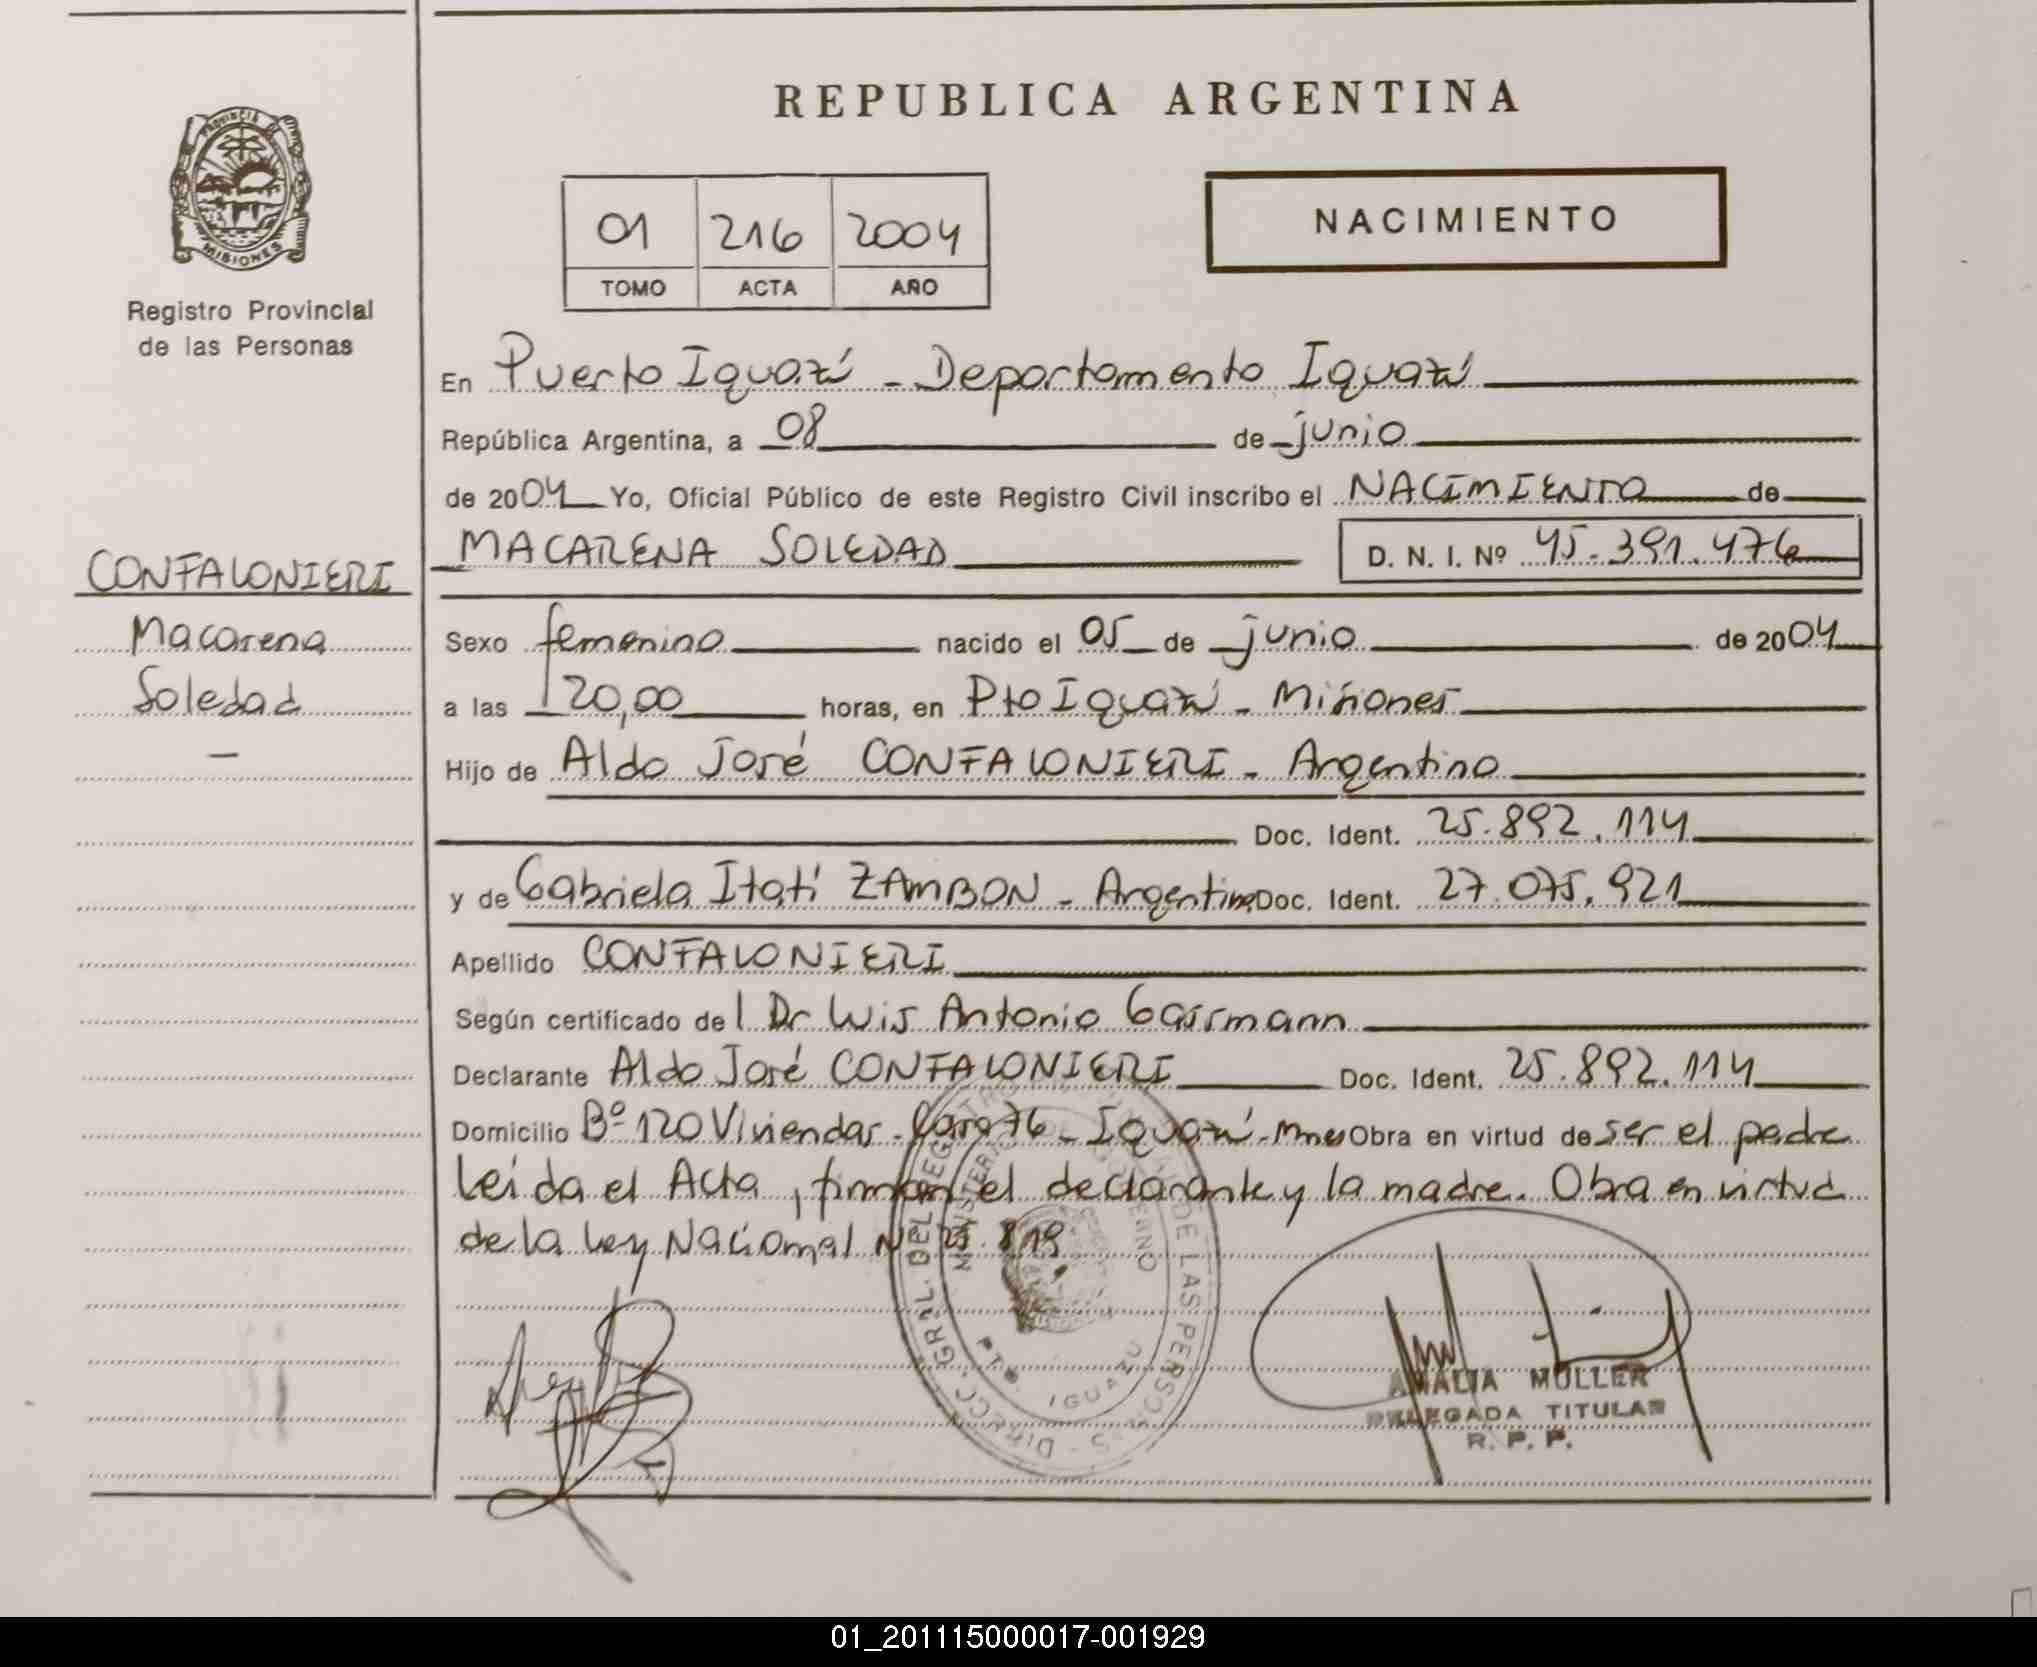 REPUBLICA ARGENTINA
PROVINCIA DE MISIONES
Registro Provincial
de las Personas
01 216 2004
TOMO ACTA AÑO
NACIMIENTO
En Puerto Iguazú - Departamento Iguazú
República Argentina, a 08 de junio
de 2004 Yo, Oficial Público de este Registro Civil inscribo el NACIMIENTO de
MACARENA SOLEDAD D. N. I. Nº 45.391.476
CONFALONIERI
Macarena
Soledad
Sexo femenino nacido el 05 de junio de 2004
a las 20,00 horas, en Pto Iguazú - Misiones
Hijo de Aldo José CONFALONIERI - Argentino
Doc. Ident. 25.892.114
y de Gabriela Itatí ZAMBON - Argentina Doc. Ident. 27.075.921
Apellido CONFALONIERI
Según certificado del Dr Luis Antonio Gassmann
Declarante Aldo José CONFALONIERI Doc. Ident. 25.892.114
Domicilio Bº 120 Viviendas - Casa 76 - Iguazú - Mnes Obra en virtud de ser el padre
Leida el Acta, firman el declarante y la madre. Obra en virtud
de la Ley Nacional Nº 25.819
DIRECC. GRAL. DEL REGISTRO DE LAS PERSONAS
MINISTERIO DE GOBIERNO
PTO. IGUAZU
AMALIA MULLER
DELEGADA TITULAR
R. P. P.
01_201115000017-001929